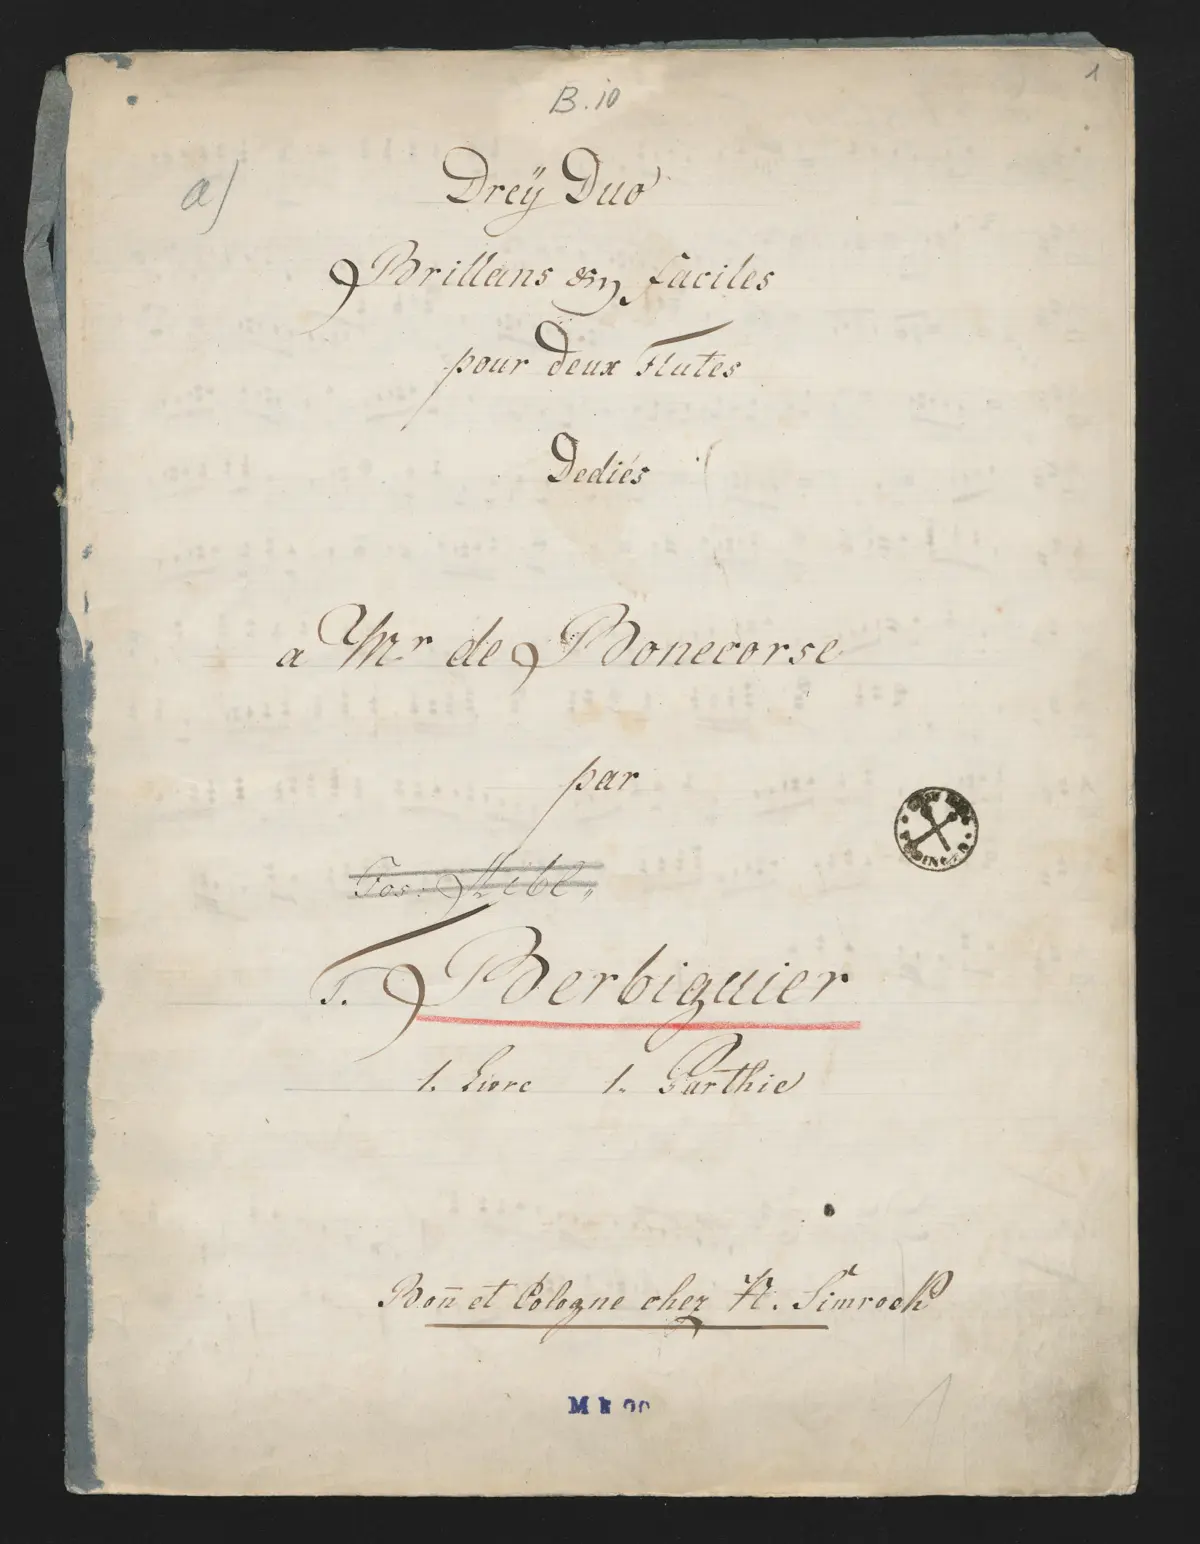 B. 10
1
a)
Dreÿ Duo
Brillans en faciles
pour deux Flutes
Dediés
a Mr de Bonecorse
par
Jos: Aibl„
T. Berbiguier
1. Livre 1. Parthie
Bon̄ et Cologne chez N. Simrock